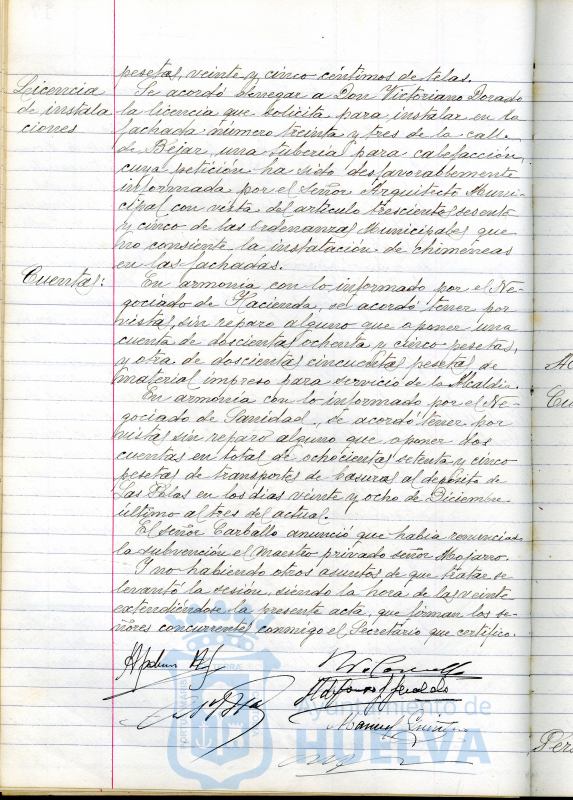 pesetas, veinte y cinco céntimos de telas.
Licencia de instalaciones
Se acordó denegar a Don Victoriano Dorado
la licencia que solicita para instalar en la
fachada número treinta y tres de la calle
de Béjar, una tubería para calefacción,
cuya petición ha sido desfavorablemente
informada por el Señor Arquitecto Muni-
cipal con vista del artículo trescientos sesenta
y cinco de las Ordenanzas Municipales que
no consiente la instalación de chimeneas
en las fachadas.
Cuentas:
En armonía con lo informado por el Ne-
gociado de Hacienda, se acordó tener por
vistas, sin reparo alguno que oponer una
cuenta de doscientas ochenta y cinco pesetas,
y otra de doscientas cincuenta pesetas de
material impreso para servicio de la Alcaldía.
En armonía con lo informado por el Ne-
gociado de Sanidad, se acordó tener por
vistas sin reparo alguno que oponer dos
cuentas en total de ochocientas setenta y cinco
pesetas de transportes de basuras al depósito de
Las Islas en los días veinte y ocho de Diciembre
último al tres del actual.
El señor Carballo anunció que había renunciado
la subvención el Maestro privado señor Mojarro.
Y no habiendo otros asuntos de que tratar se
levantó la sesión, siendo la hora de las veinte
extendiéndose la presente acta, que firman los se-
ñores concurrentes conmigo el Secretario que certifico.
Manuel
Ayuntamiento de
HUELVA
Cu